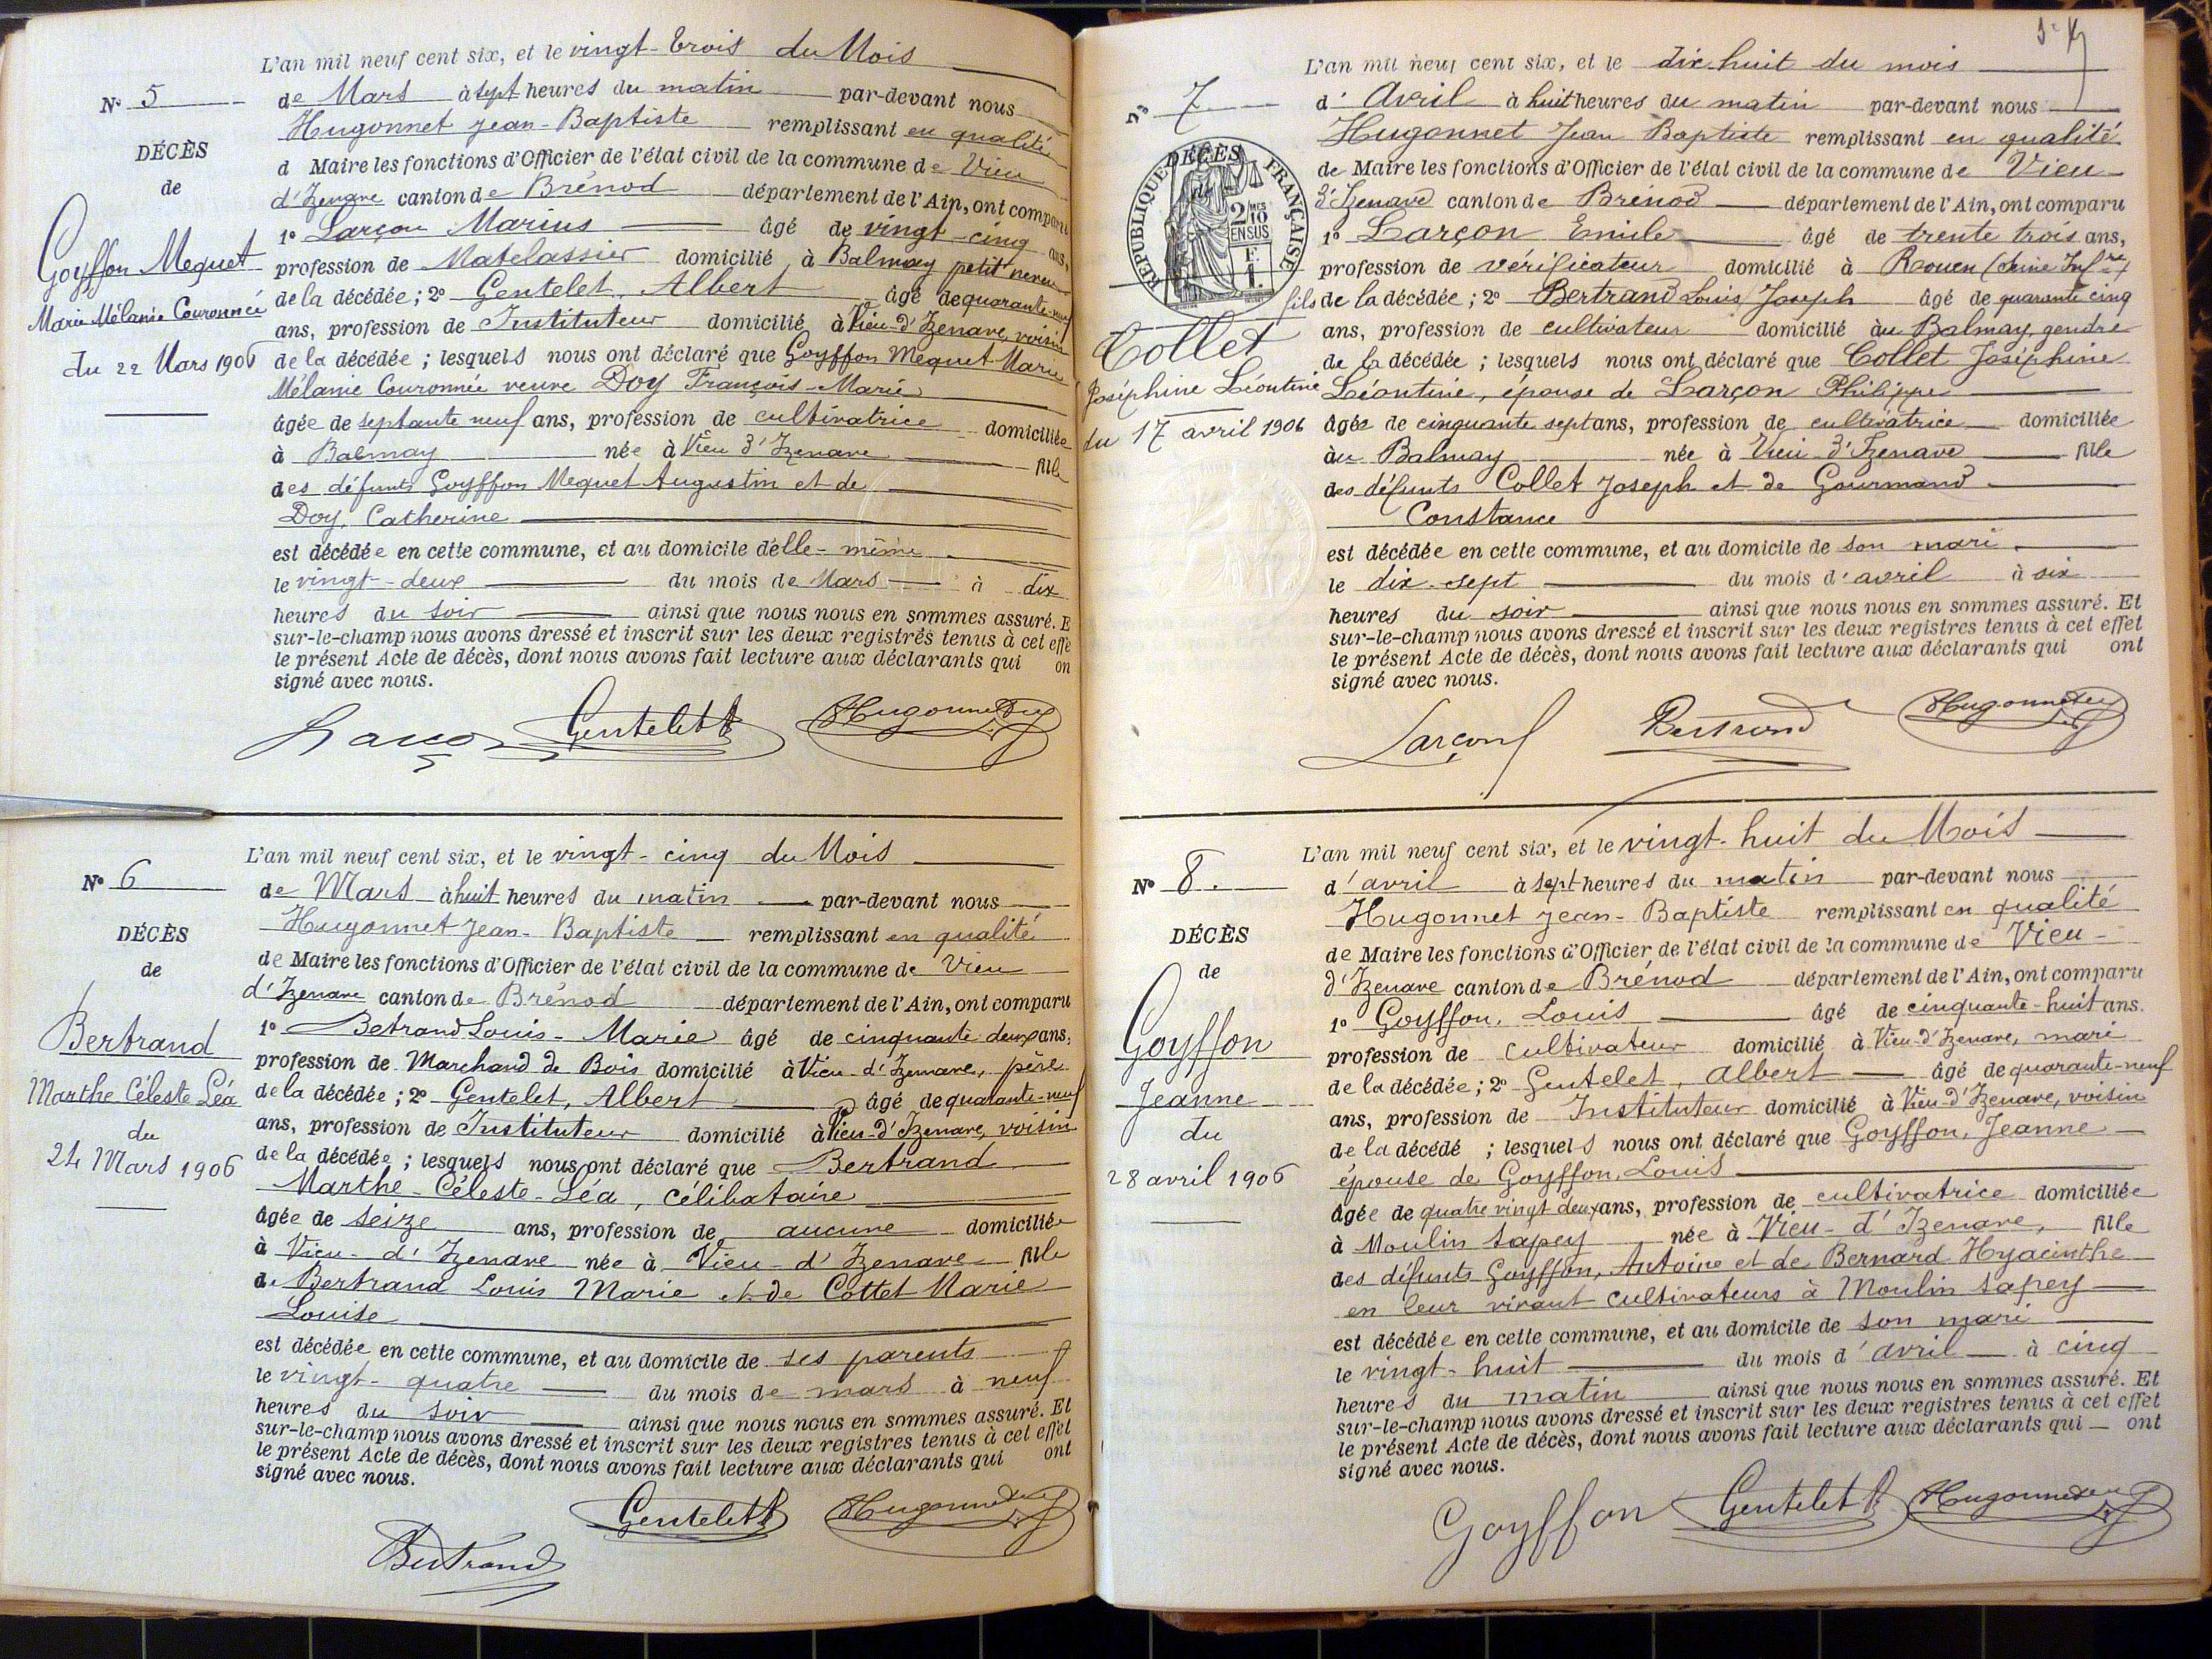 L'an mil neuf cent six, et le vingt-trois du Mois
N° 5
de Mars à sept heures du matin par-devant nous
Hugonnet Jean-Baptiste remplissant en qualité
DÉCÈS
d Maire les fonctions d'Officier de l'état civil de la commune de Vieu
de
d'Izenave canton de Brénod département de l'Ain, ont comparu
1° Larçon Marius âgé de vingt-cinq ans,
Goyffon Mequet
profession de Matelassier domicilié à Balmay petit neveu
Marie Mélanie Couronnée
de la décédée ; 2° Gentelet, Albert âgé de quarante-neuf
ans, profession de Instituteur domicilié à Vieu-d'Izenave, voisin
du 22 Mars 1906
de la décédée ; lesquels nous ont déclaré que Goyffon Mequet Marie
Mélanie Couronnée veuve Doy François-Marie
âgée de septante neuf ans, profession de cultivatrice domiciliée
à Balmay née à Vieu d'Izenave fille
des défunts Goyffon Mequet Augustin et de
Doy, Catherine
est décédée en cette commune, et au domicile d'elle-même
le vingt-deux du mois de Mars à dix
heures du soir ainsi que nous nous en sommes assuré. E
sur-le-champ nous avons dressé et inscrit sur les deux registres tenus à cet effe
le présent Acte de décès, dont nous avons fait lecture aux déclarants qui on
signé avec nous.
Gentelet A Hugonnet
L'an mil neuf cent six, et le vingt-cinq du Mois
N° 6
de Mars à huit heures du matin par-devant nous
Hugonnet Jean-Baptiste remplissant en qualité
DÉCÈS
de Maire les fonctions d'Officier de l'état civil de la commune de Vieu
de
d'Izenave canton de Brénod département de l'Ain, ont comparu
1° Betrand Louis-Marie âgé de cinquante deux ans,
Bertrand
profession de Marchand de Bois domicilié à Vieu-d'Izenave, père
Marthe Céleste Léa
de la décédée ; 2° Gentelet, Albert âgé de quarante-neuf
du
ans, profession de Instituteur domicilié à Vieu-d'Izenave, voisin
24 Mars 1906
de la décédée ; lesquels nous ont déclaré que Bertrand
Marthe-Céleste-Léa, célibataire
âgée de seize ans, profession de aucune domiciliée
à Vieu-d'Izenave née à Vieu-d'Izenave fille
de Bertrand Louis Marie et de Cottet Marie
Louise
est décédée en cette commune, et au domicile de ses parents
le vingt-quatre du mois de mars à neuf
heures du soir ainsi que nous nous en sommes assuré. Et
sur-le-champ nous avons dressé et inscrit sur les deux registres tenus à cet effet
le présent Acte de décès, dont nous avons fait lecture aux déclarants qui ont
signé avec nous.
Gentelet A Hugonnet
Bertrand
L'an mil neuf cent six, et le dix-huit du mois
7
d'Avril à huit heures du matin par-devant nous
Hugonnet Jean Baptiste remplissant en qualité
DÉCÈS
RÉPUBLIQUE FRANÇAISE
de Maire les fonctions d'Officier de l'état civil de la commune de Vieu-
d'Izenave canton de Brénod département de l'Ain, ont comparu
1° Larçon Emile âgé de trente trois ans,
profession de vérificateur domicilié à Rouen (Seine Infre)
fils de la décédée ; 2° Bertrand Louis Joseph âgé de quarante cinq
Collet
ans, profession de cultivateur domicilié àu Balmay, gendre
de la décédée ; lesquels nous ont déclaré que Collet Joséphine
Joséphine Léontine
Léontine, épouse de Larçon Philippe
du 17 avril 1906
âgée de cinquante sept ans, profession de cultivatrice domiciliée
àu Balmay née à Vieu-d'Izenave fille
des défunts Collet Joseph et de Gourmand
Constance
est décédée en cette commune, et au domicile de son mari
le dix-sept du mois d'avril à six
heures du soir ainsi que nous nous en sommes assuré. Et
sur-le-champ nous avons dressé et inscrit sur les deux registres tenus à cet effet
le présent Acte de décès, dont nous avons fait lecture aux déclarants qui ont
signé avec nous.
Larçon Bertrand Hugonnet
L'an mil neuf cent six, et le vingt-huit du Mois
N° 8.
d'avril à sept heures du matin par-devant nous
Hugonnet Jean-Baptiste remplissant en qualité
DÉCÈS
de Maire les fonctions d'Officier de l'état civil de la commune de Vieu-
de
d'Izenave canton de Brénod département de l'Ain, ont comparu
1° Goyffon, Louis âgé de cinquante-huit ans.
Goyffon
profession de cultivateur domicilié à Vieu-d'Izenave, mari
de la décédée ; 2° Gentelet, Albert âgé de quarante-neuf
Jeanne
ans, profession de Instituteur domicilié à Vieu-d'Izenave, voisin
du
de la décédé ; lesquels nous ont déclaré que Goyffon, Jeanne
28 avril 1906
épouse de Goyffon, Louis
âgée de quatre vingt deux ans, profession de cultivatrice domiciliée
à Moulin Sapey née à Vieu-d'Izenave, fille
des défunts Goyffon, Antoine et de Bernard Hyacinthe
en leur vivant cultivateurs à Moulin Sapey
est décédée en cette commune, et au domicile de son mari
le vingt-huit du mois d'avril à cinq
heures du matin ainsi que nous nous en sommes assuré. Et
sur-le-champ nous avons dressé et inscrit sur les deux registres tenus à cet effet
le présent Acte de décès, dont nous avons fait lecture aux déclarants qui ont
signé avec nous.
Goyffon Gentelet A Hugonnet